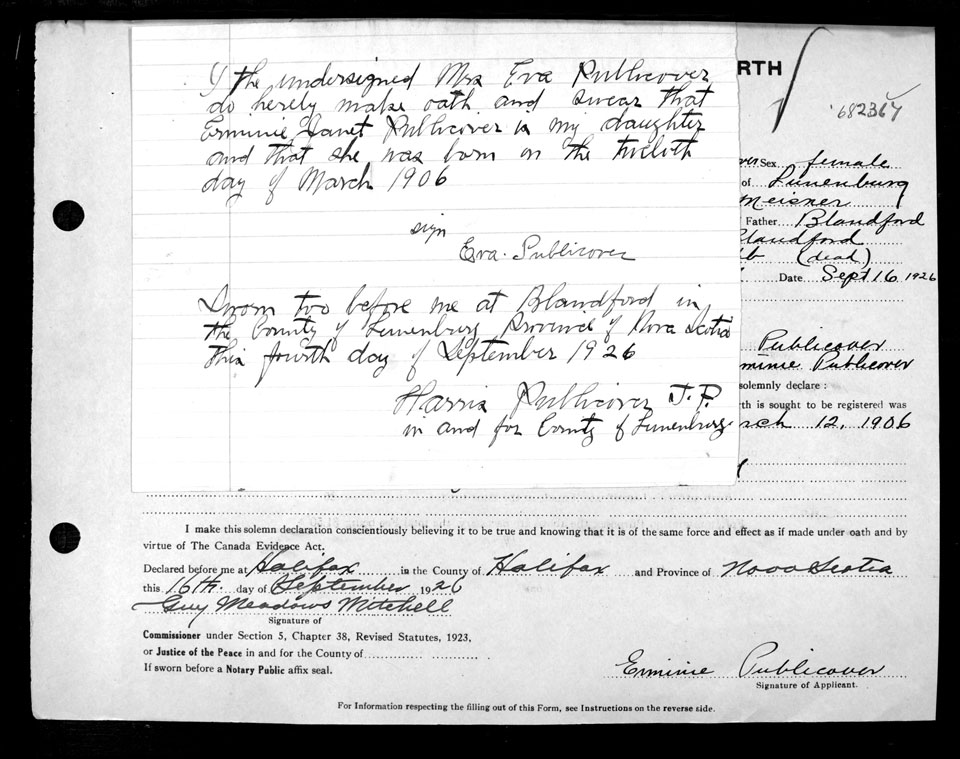 I the undersigned Mrs Eva Publicover
do hereby make oath and swear that
Erminie Janet Publicover is my daughter
and that she was born on the twelvth
day of March 1906
sign
Eva Publicover
Sworn too before me at Blandford in
the County of Lunenburg Province of Nova Scotia
this fourth day of September 1926
Harris Publicover J. P.
in and for County of Lunenburg
RTH
682367
ver Sex female
of Lunenburg
Meisner
Father Blandford
Blandford
(dead)
Date Sept 16 1926
Publicover
minie Publicover
solemnly declare :
rth is sought to be registered was
rch 12, 1906
I make this solemn declaration conscientiously believing it to be true and knowing that it is of the same force and effect as if made under oath and by
virtue of The Canada Evidence Act.
Declared before me at Halifax in the County of Halifax and Province of Nova Scotia
this 16th day of September 1926
Guy Meadows Mitchell
Signature of
Commissioner under Section 5, Chapter 38, Revised Statutes, 1923,
or Justice of the Peace in and for the County of
If sworn before a Notary Public affix seal.
Erminie Publicover
Signature of Applicant.
For Information respecting the filling out of this Form, see Instructions on the reverse side.